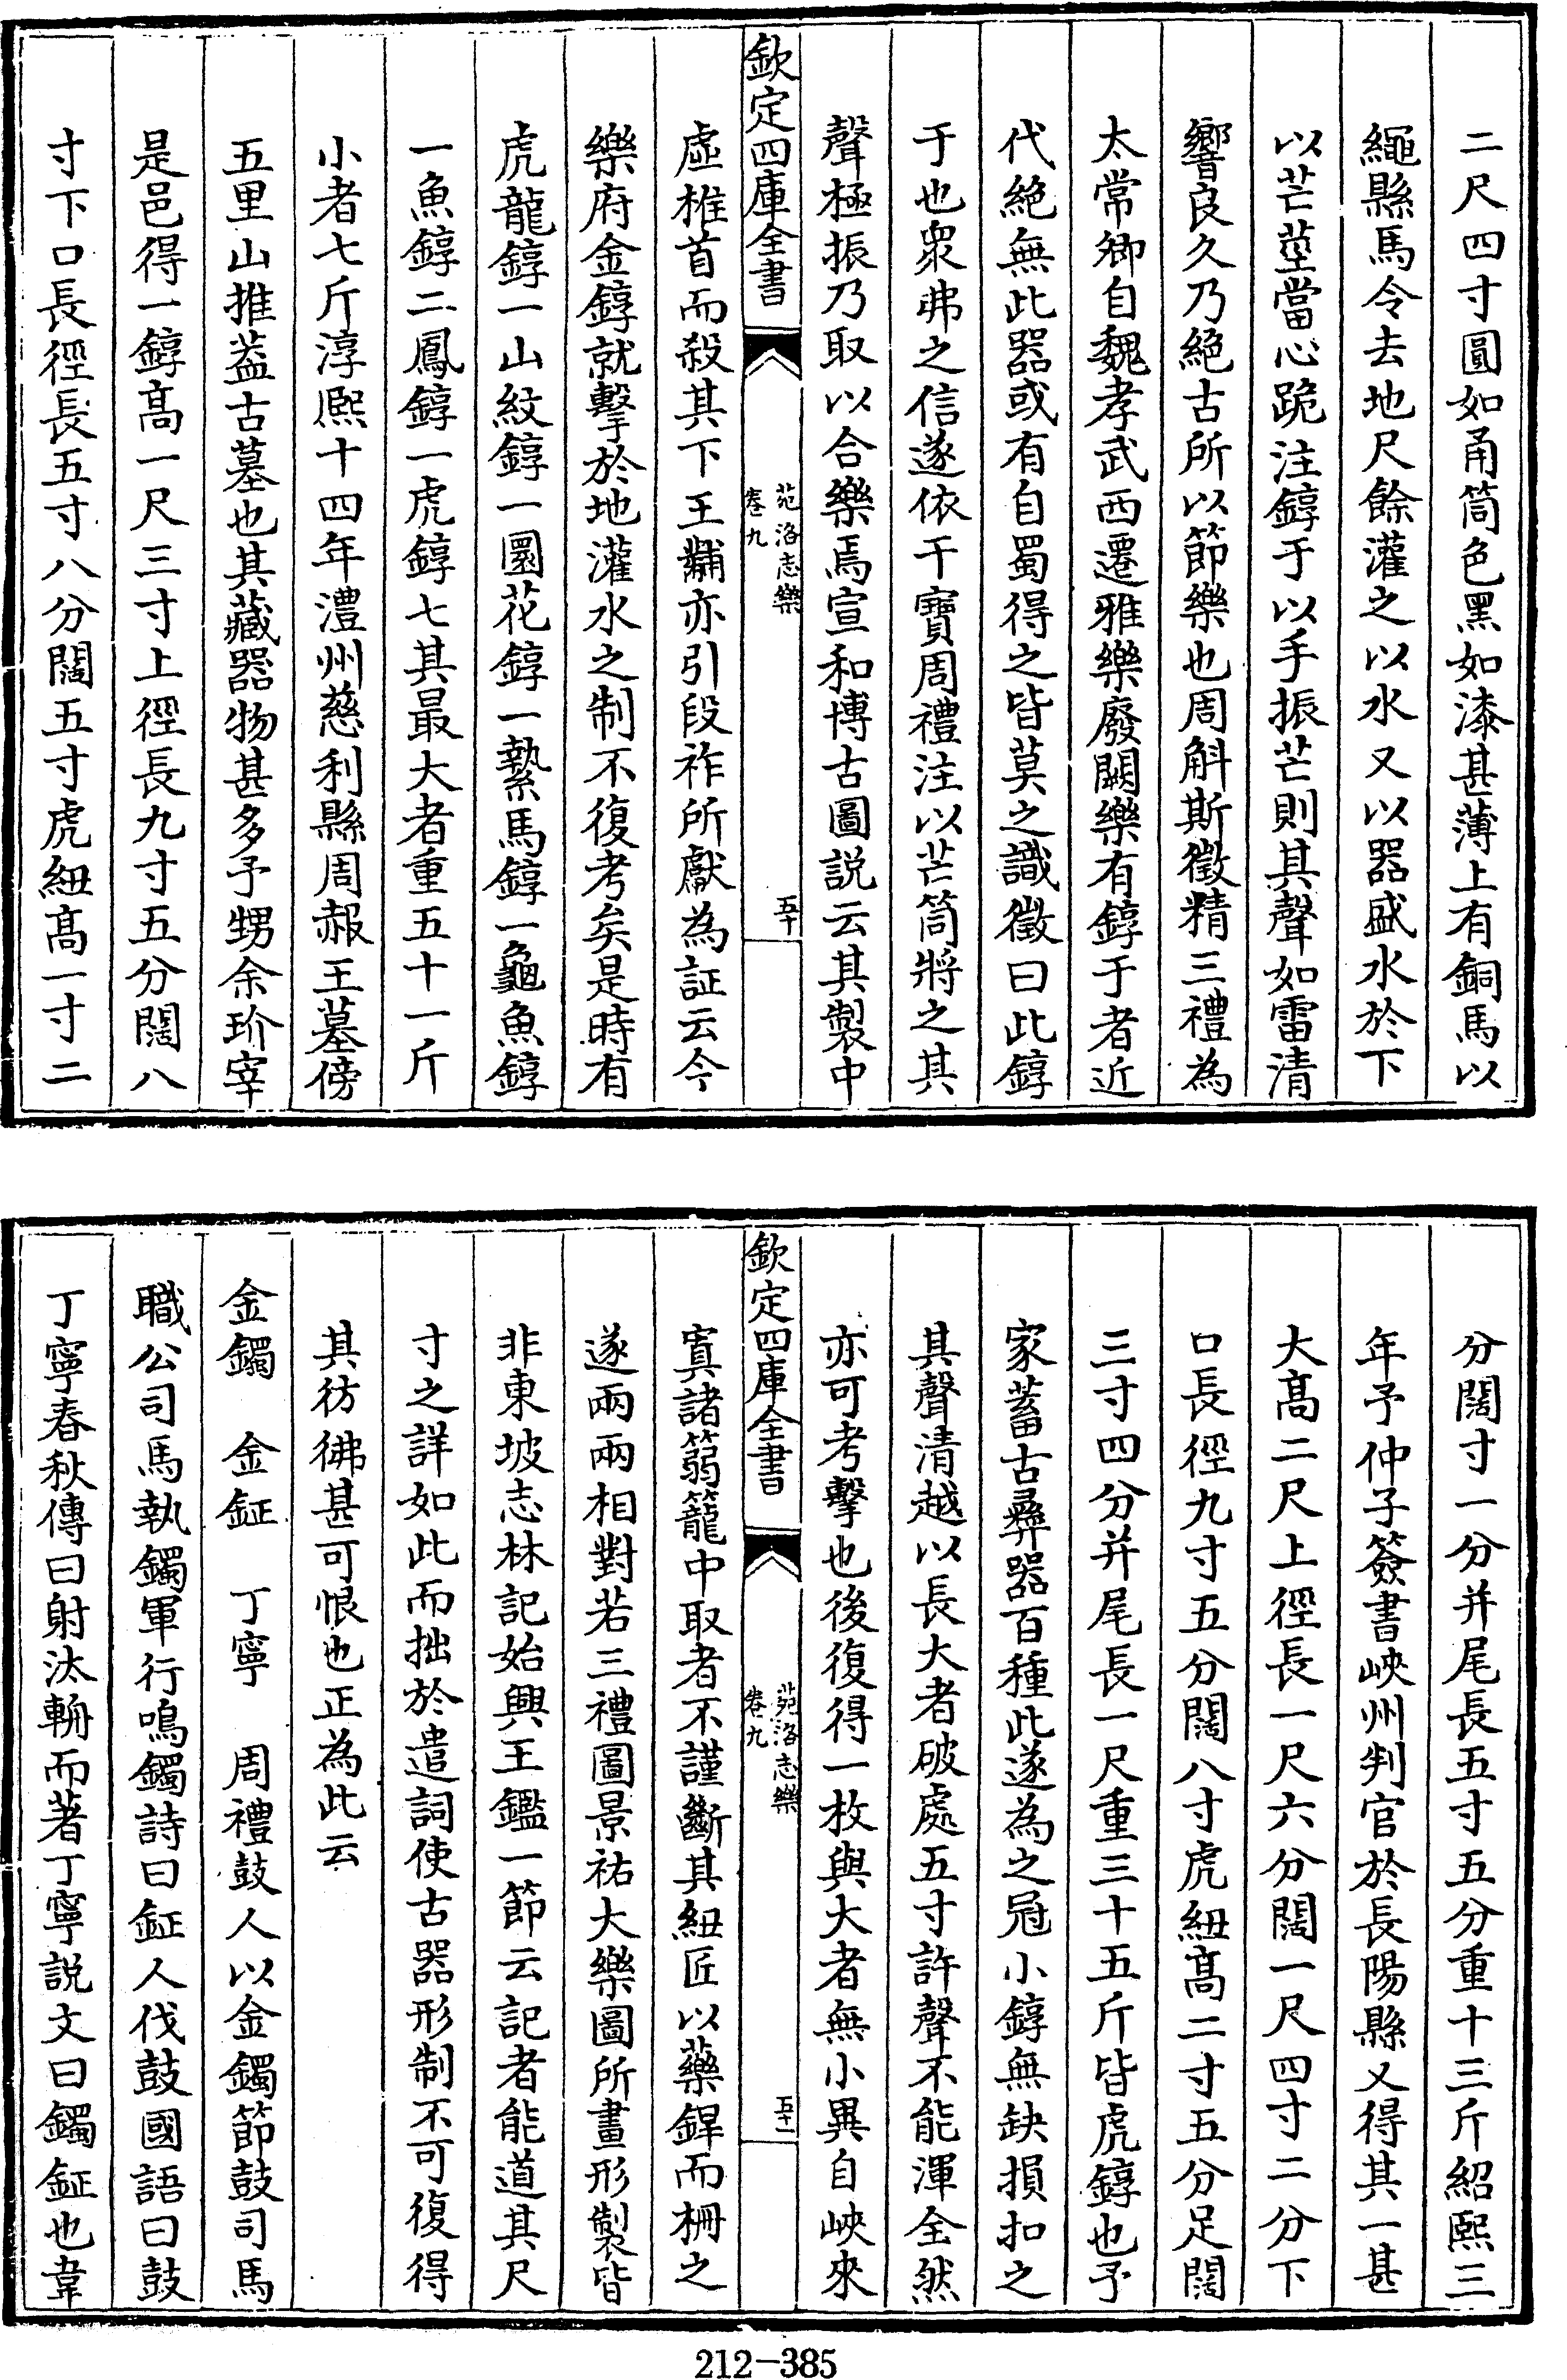 二尺四寸圓如甬筒色黑如漆甚薄上有銅馬以
繩縣馬令去地尺餘灌之以水又以器盛水於下
以芒莖當心跪注錞于以手振芒則其聲如雷清
響良久乃絕古所以節樂也周斛斯徵精三禮為
太常卿自魏孝武西遷雅樂廢闕樂有錞于者近
代絕無此器或有自蜀得之皆莫之識徵曰此錞
于也衆弗之信遂依干寶周禮注以芒筒將之其
聲極振乃取以合樂焉宣和博古圖説云其製中
欽定四庫全書
苑洛志樂
卷九
五十
虛椎首而殺其下王黼亦引段祚所獻為証云今
樂府金錞就擊於地灌水之制不復考矣是時有
虎龍錞一山紋錞一圜花錞一縶馬錞一龜魚錞
一魚錞二鳳錞一虎錞七其最大者重五十一斤
小者七斤淳熙十四年澧州慈利縣周赧王墓傍
五里山摧蓋古墓也其藏器物甚多予甥余玠宰
是邑得一錞高一尺三寸上徑長九寸五分闊八
寸下口長徑長五寸八分闊五寸虎紐高一寸二
分闊寸一分并尾長五寸五分重十三斤紹熙三
年予仲子簽書峽州判官於長陽縣又得其一甚
大高二尺上徑長一尺六分闊一尺四寸二分下
口長徑九寸五分闊八寸虎紐高二寸五分足闊
三寸四分并尾長一尺重三十五斤皆虎錞也予
家蓄古彞器百種此遂為之冠小錞無缺損扣之
其聲清越以長大者破處五寸許聲不能渾全然
亦可考擊也後復得一枚與大者無小異自峽來
欽定四庫全書
苑洛志樂
卷九
五十一
寘諸篛籠中取者不謹斷其紐匠以藥銲而柵之
遂兩兩相對若三禮圖景祐大樂圖所畫形製皆
非東坡志林記始興王鑑一節云記者能道其尺
寸之詳如此而拙於遣詞使古器形制不可復得
其彷彿甚可恨也正為此云
金鐲　金鉦　丁寧　周禮鼓人以金鐲節鼓司馬
職公司馬執鐲軍行鳴鐲詩曰鉦人伐鼓國語曰鼓
丁寧春秋傳曰射汰輈而著丁寧説文曰鐲鉦也韋
212-385